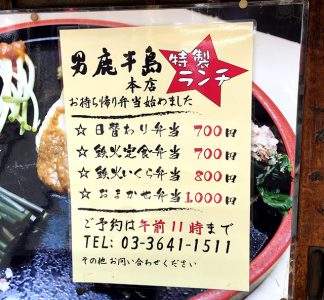 男鹿半島
本店
特製
ランチ
お持ち帰り弁当始めました
☆ 日替わり弁当 700円
☆ 鉄火定食弁当 700円
☆ 鉄火いくら弁当 800円
☆ おまかせ弁当 1,000円
ご予約は午前11時まで
TEL: 03-3641-1511
その他お問い合わせください